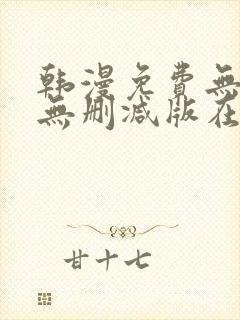 韩漫免費無
無删减版在
甘十七